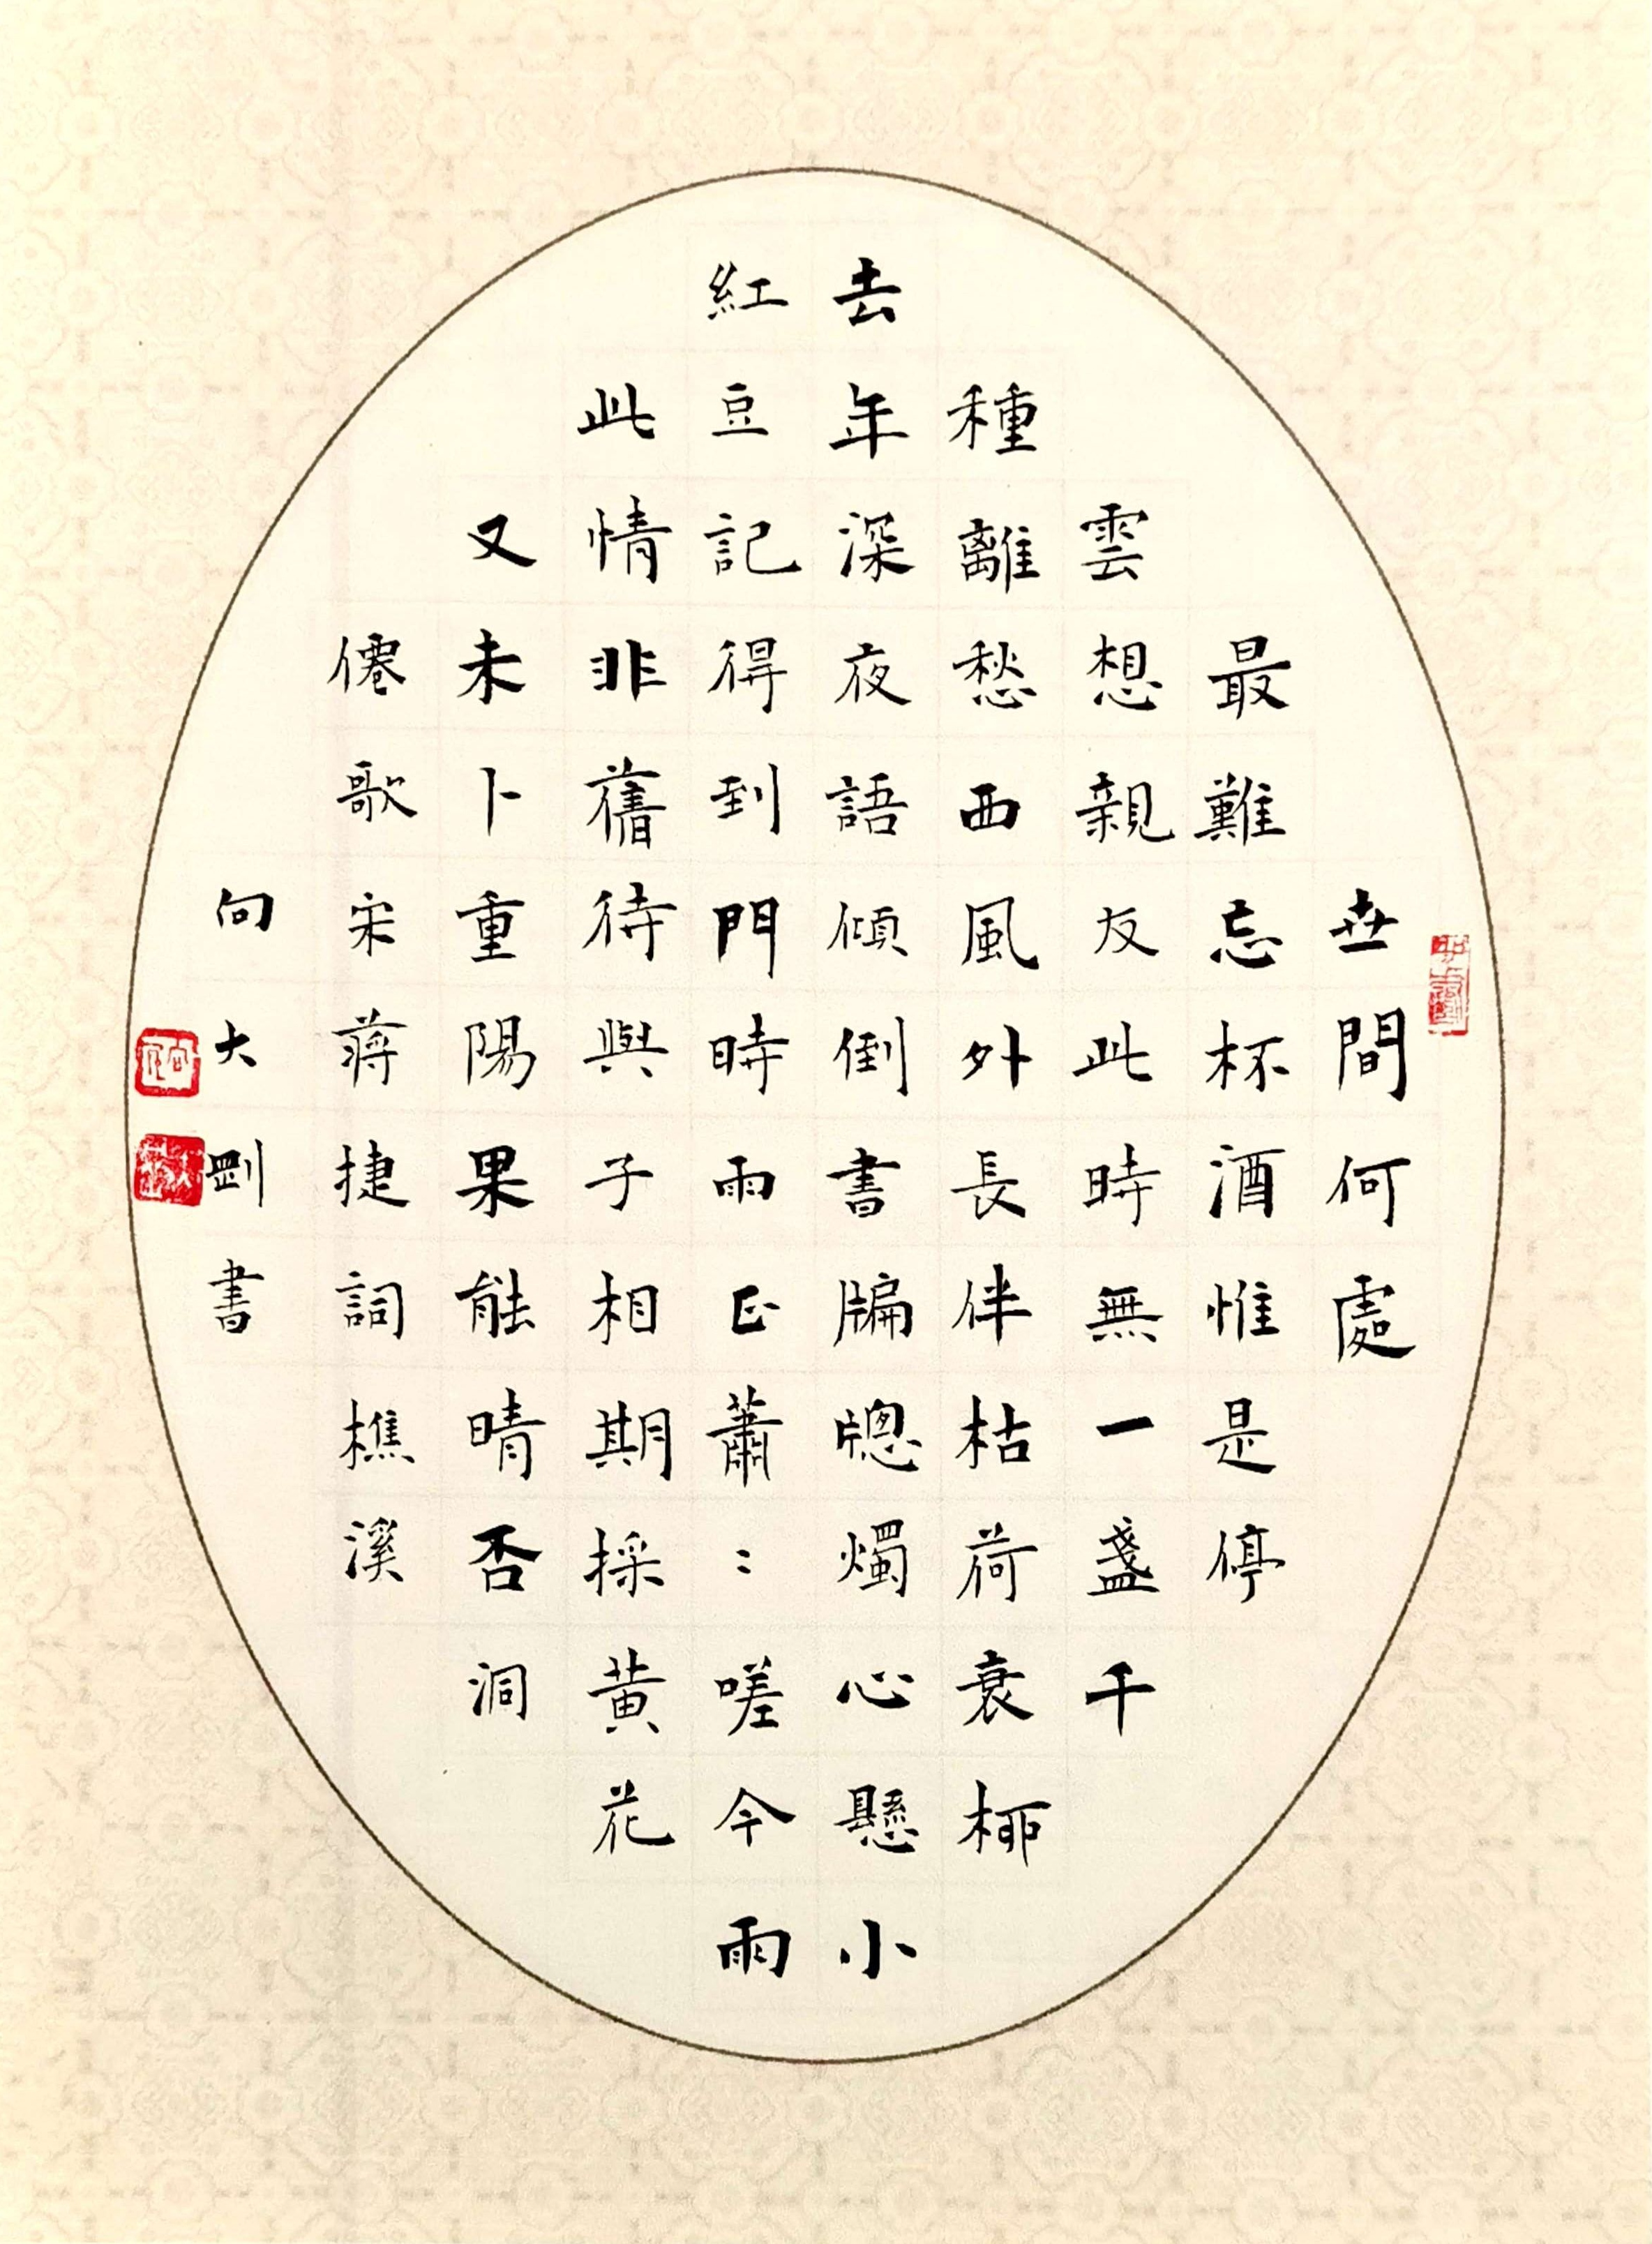 世間何處
最難忘杯酒惟是停
雲想親友此時無一盞千
種離愁西風外長伴枯荷衰柳
去年深夜語傾倒書牖牕燭心懸小
紅豆記得到門時雨正蕭：嗟今雨
此情非舊待與子相期採黃花
又未卜重陽果能晴否洞
僊歌宋蔣捷詞樵溪
向大剛書